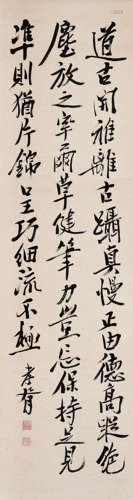 道古閑雅離古躡真慢正由德高蹤絕
塵放之宰爾草健筆力豈忘保持足見
準則猶片錦呈巧細流不極 孝胥